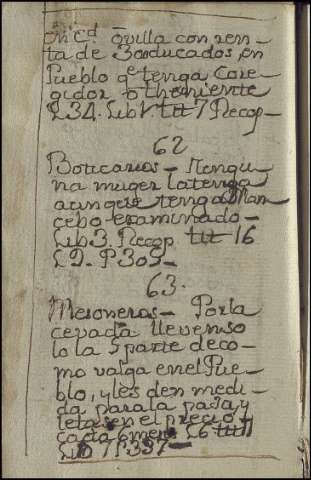 en Cd. o villa con ren-
ta de 300 ducados, en
Pueblo qe tenga Core-
gidor o theniente
L 34. Lib 1. tit 7 Recop-
62
Boticarios - Nengu-
na muger la tenga
aunque tenga Man
cebo examinado -
Lib 3. Recop tit 16
L 9. P 305-
63.
Mesoneros - Por la
cevada lleven so
lo la 5 parte de co-
mo valga en el Pue-
blo, y les den medi-
da para la paja, y
tasen el precio
cada 6 mess L 6 tit 11
Lib 7 P 337-